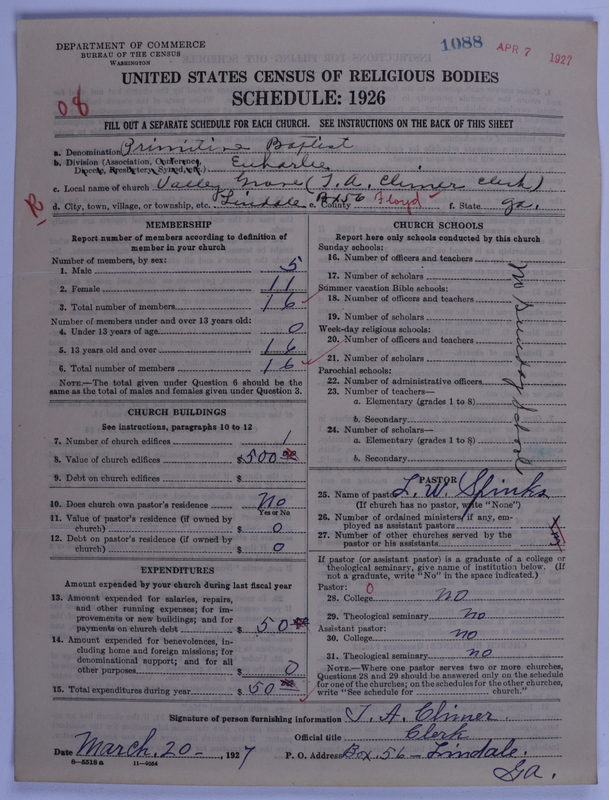 DEPARTMENT OF COMMERCE
BUREAU OF THE CENSUS
WASHINGTON
1088 APR 7 1927
UNITED STATES CENSUS OF RELIGIOUS BODIES
SCHEDULE: 1926
08
FILL OUT A SEPARATE SCHEDULE FOR EACH CHURCH. SEE INSTRUCTIONS ON THE BACK OF THIS SHEET
a. Denomination Primitive Baptist
b. Division (Association, Conference, Diocese, Presbytery, Synod, etc.) Euharlee
c. Local name of church Valley Grove (T. A. Climer Clerk)
d. City, town, village, or township, etc. Lindale Bx 56 e. County Floyd f. State Ga.
R
MEMBERSHIP
Report number of members according to definition of
member in your church
Number of members, by sex:
1. Male 5
2. Female 11
3. Total number of members 16
Number of members under and over 13 years old:
4. Under 13 years of age 0
5. 13 years old and over 16
6. Total number of members 16
NOTE.—The total given under Question 6 should be the
same as the total of males and females given under Question 3.
CHURCH BUILDINGS
See instructions, paragraphs 10 to 12
7. Number of church edifices 1
8. Value of church edifices $500
9. Debt on church edifices $
10. Does church own pastor's residence No
Yes or No
11. Value of pastor's residence (if owned by
church) $ 0
12. Debt on pastor's residence (if owned by
church) $ 0
EXPENDITURES
Amount expended by your church during last fiscal year
13. Amount expended for salaries, repairs,
and other running expenses; for im-
provements or new buildings; and for
payments on church debt $ 50
14. Amount expended for benevolences, in-
cluding home and foreign missions; for
denominational support; and for all
other purposes $ 0
15. Total expenditures during year $ 50
CHURCH SCHOOLS
Report here only schools conducted by this church
Sunday schools:
16. Number of officers and teachers
17. Number of scholars
Summer vacation Bible schools:
18. Number of officers and teachers
19. Number of scholars
Week-day religious schools:
20. Number of officers and teachers
21. Number of scholars
Parochial schools:
22. Number of administrative officers
23. Number of teachers—
a. Elementary (grades 1 to 8)
b. Secondary
24. Number of scholars—
a. Elementary (grades 1 to 8)
b. Secondary
No Sunday School
PASTOR
25. Name of pastor L. W. Spinks
(If church has no pastor, write "None")
26. Number of ordained ministers, if any, em-
ployed as assistant pastors
27. Number of other churches served by the
pastor or his assistants
If pastor (or assistant pastor) is a graduate of a college or
theological seminary, give name of institution below. (If
not a graduate, write "No" in the space indicated.)
Pastor: 0
28. College no
29. Theological seminary no
Assistant pastor:
30. College no
31. Theological seminary no
NOTE.—Where one pastor serves two or more churches,
Questions 28 and 29 should be answered only on the schedule
for one of the churches; on the schedules for the other churches,
write "See schedule for church."
Signature of person furnishing information T. A. Climer
Official title Clerk
Date March, 20 -, 1927 P. O. Address Box. 56 - Lindale.
Ga.
8-5518 a 11-9034